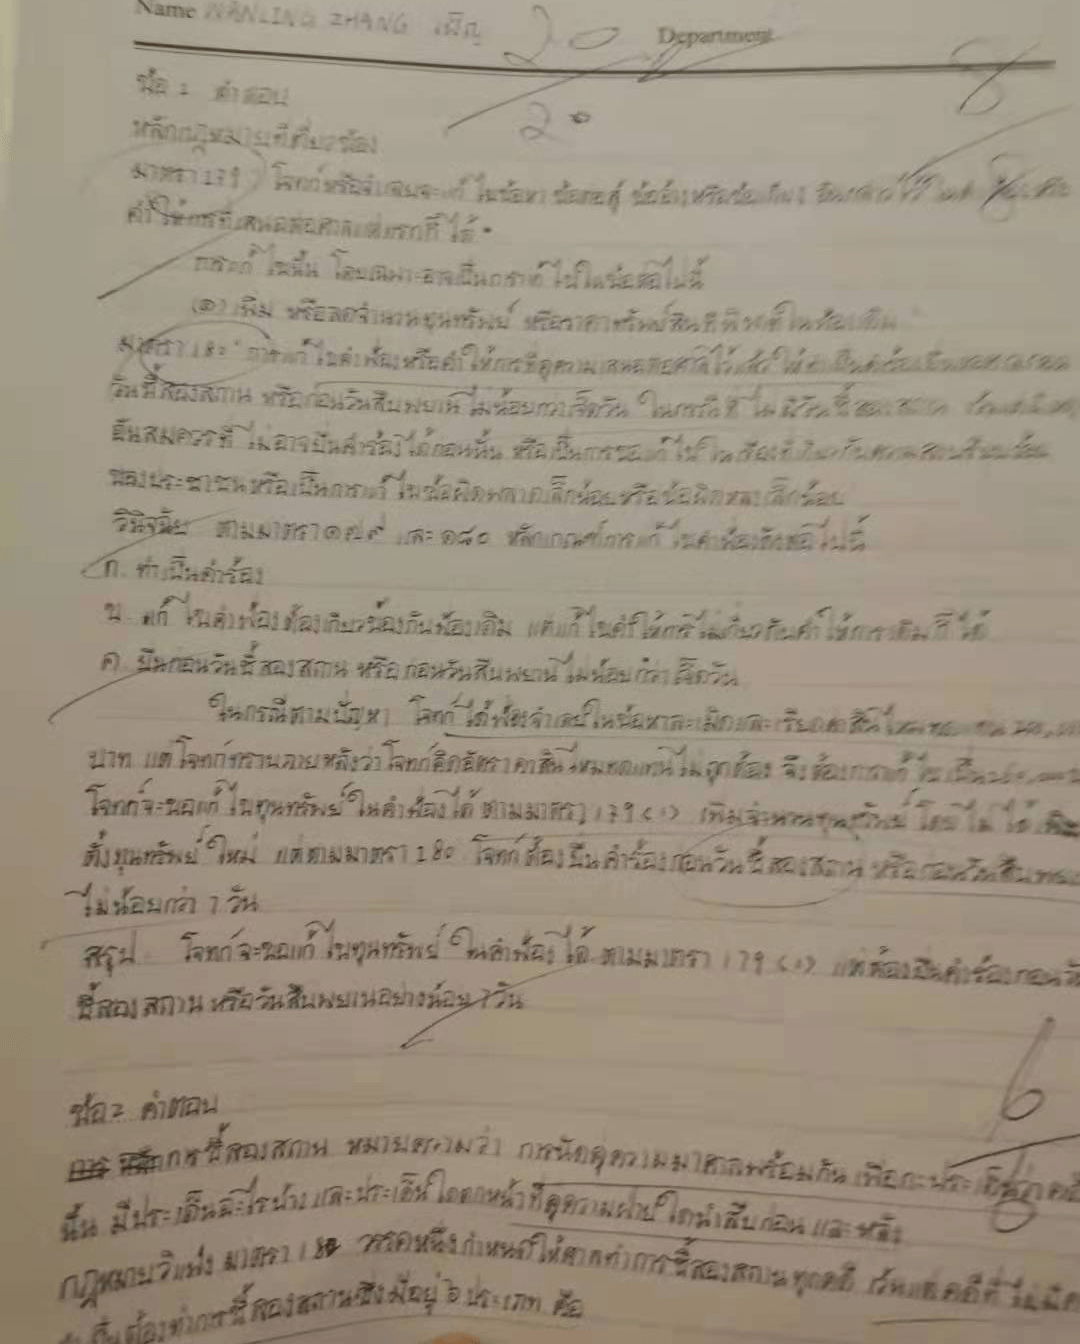 Name WANLING ZHANG เผิญ 20 Department
20
8
ข้อ 1 คำตอบ
หลักกฎหมายที่เกี่ยวข้อง
มาตรา 179 โจทก์หรือจำเลยจะแก้ไขข้อหา ข้อต่อสู้ ข้ออ้างหรือข้อเถียง
คำให้การที่เสนอต่อศาลแต่แรกก็ได้
การแก้ไขนั้น โดยเฉพาะอาจเป็นการแก้ไขในข้อต่อไปนี้
(๑) เพิ่ม หรือลดจำนวนทุนทรัพย์ หรือราคาทรัพย์สินที่พิพาทในฟ้องเดิม
มาตรา 180 การแก้ไขคำฟ้องหรือคำให้การที่คู่ความเสนอต่อศาลไว้แล้ว ให้ทำเป็นคำร้องยื่นต่อศาลก่อน
วันชี้สองสถาน หรือก่อนวันสืบพยานไม่น้อยกว่าเจ็ดวัน ในกรณีที่ไม่มีวันชี้สองสถาน เว้นแต่มีเหตุ
อันสมควรที่ไม่อาจยื่นคำร้องได้ก่อนนั้น หรือเป็นการขอแก้ไขในเรื่องที่เกี่ยวกับความสงบเรียบร้อย
ของประชาชนหรือเป็นการแก้ไขข้อผิดพลาดเล็กน้อยหรือข้อผิดหลงเล็กน้อย
วินิจฉัย ตามมาตรา ๑๗๙ และ ๑๘๐ หลักเกณฑ์การแก้ไขคำฟ้องดังต่อไปนี้
ก. ทำเป็นคำร้อง
ข. แก้ไขคำฟ้องต้องเกี่ยวข้องกับฟ้องเดิม แต่แก้ไขคำให้การไม่เกี่ยวกับคำให้การเดิมก็ได้
ค. ยื่นก่อนวันชี้สองสถาน หรือก่อนวันสืบพยานไม่น้อยกว่าเจ็ดวัน
ในกรณีตามปัญหา โจทก์ได้ฟ้องจำเลยในข้อหาละเมิดและเรียกค่าสินไหมทดแทน
บาท แต่โจทก์ทราบภายหลังว่าโจทก์คิดอัตราค่าสินไหมทดแทนไม่ถูกต้อง จึงต้องการแก้ไขเป็น
โจทก์จะขอแก้ไขทุนทรัพย์ในคำฟ้องได้ ตามมาตรา 179 (1) เพิ่มจำนวนทุนทรัพย์ โดยไม่ได้
ตั้งทุนทรัพย์ใหม่ แต่ตามมาตรา 180 โจทก์ต้องยื่นคำร้องก่อนวันชี้สองสถาน หรือก่อนวันสืบพยาน
ไม่น้อยกว่า 7 วัน
สรุป โจทก์จะขอแก้ไขทุนทรัพย์ในคำฟ้องได้ ตามมาตรา 179 (1) แต่ต้องยื่นคำร้องก่อนวัน
ชี้สองสถาน หรือวันสืบพยานอย่างน้อย 7 วัน
6
ข้อ 2 คำตอบ
การชี้สองสถาน หมายความว่า การนัดคู่ความมาศาลพร้อมกัน เพื่อกะประเด็นว่าคดี
นั้น มีประเด็นอะไรบ้าง และประเด็นใดตกหน้าที่คู่ความฝ่ายใดนำสืบก่อน และหลัง
กฎหมายวิแพ่ง มาตรา 18 วรรคหนึ่งกำหนดให้ศาลทำการชี้สองสถานทุกคดี เว้นแต่คดีที่ไม่มี
ต้องทำการชี้สองสถานซึ่งมีอยู่ 6 ประเภท คือ